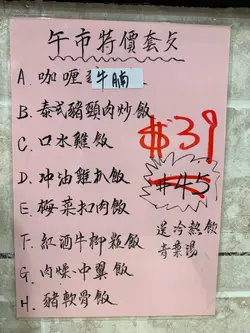 午市特價套歺
A. 咖喱牛腩
B. 泰式豬頸肉炒飯
C. 口水雞飯
D. 冲油雞扒飯
E. 梅菜扣肉飯
F. 紅酒牛柳粒飯
G. 肉燥中翼飯
H. 豬軟骨飯
$39
$45
送冷熱飲
青菜湯